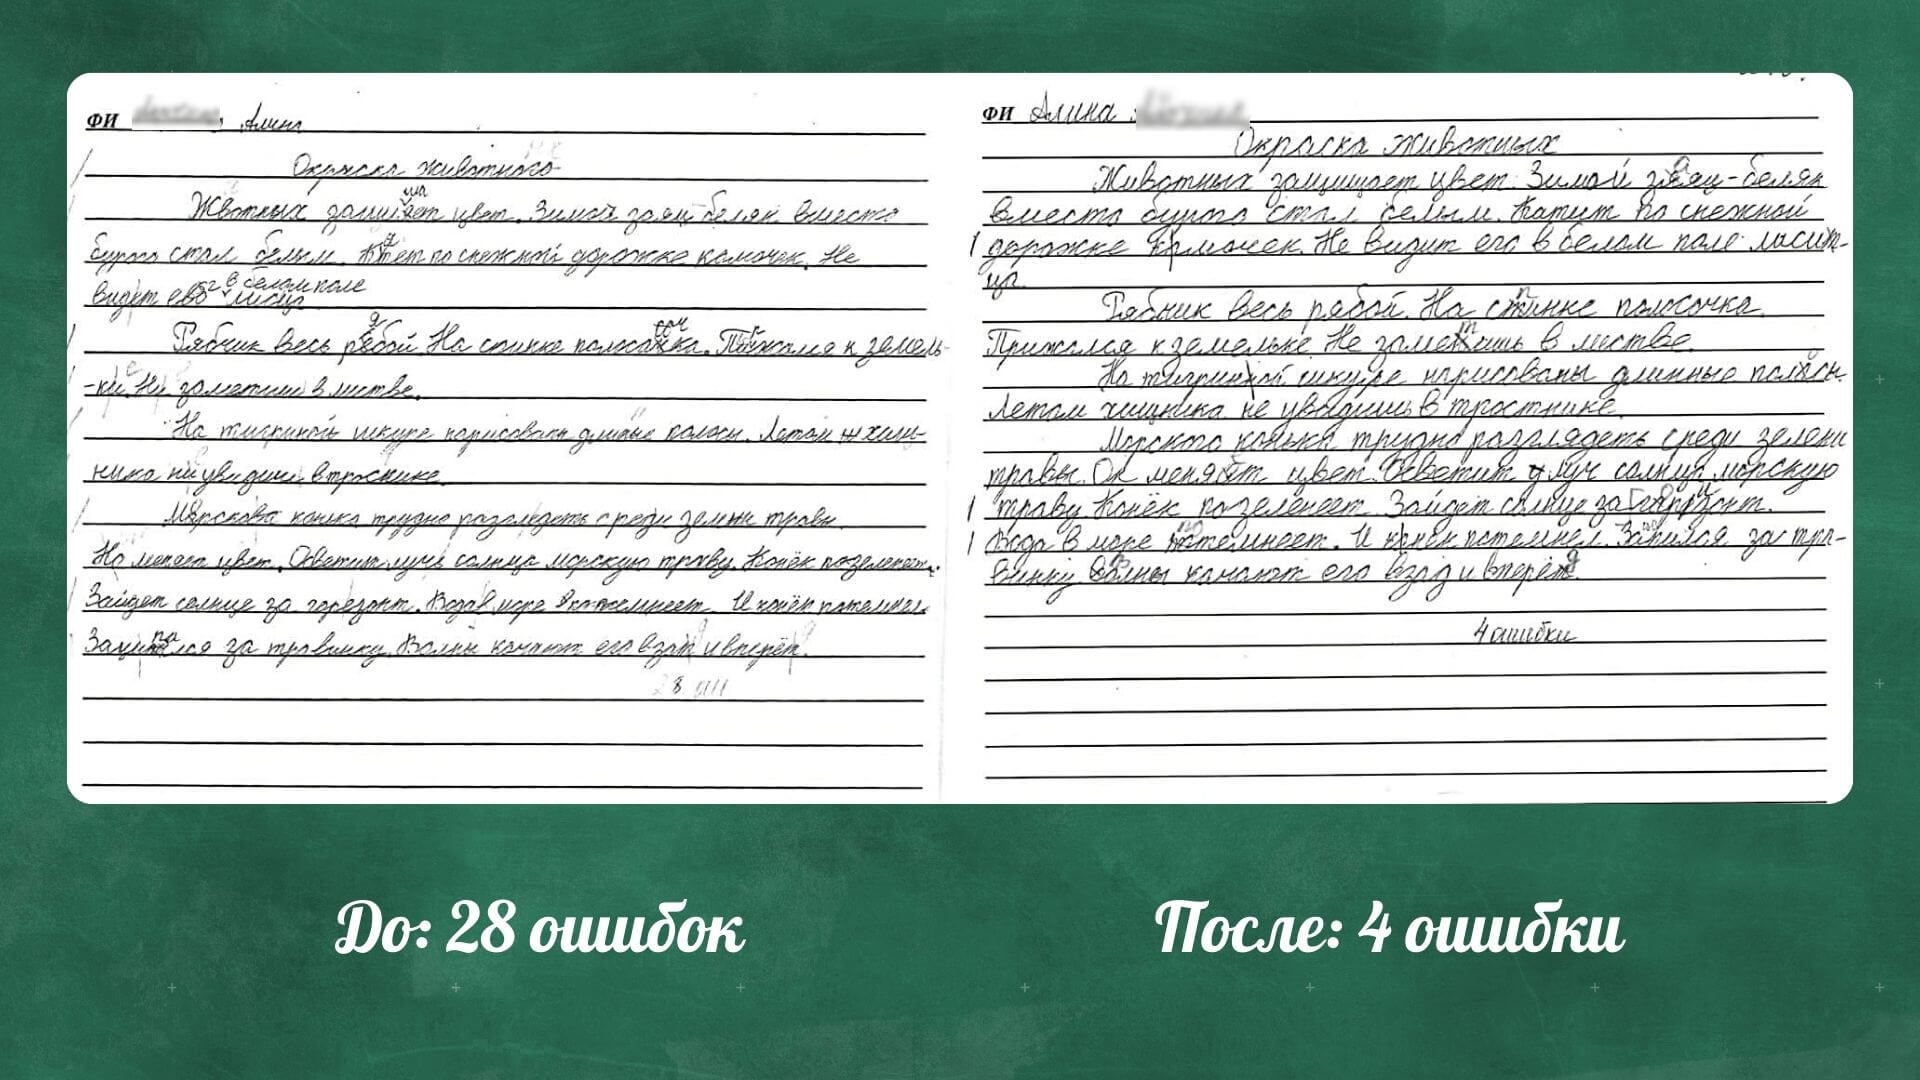 ФИ Алина
Окраска животного
Жвотных защищает цвет. Зимой заяц беляк вместо
бурого стал белым. Катет по снежной дорожке комочек. Не
видет ево в белом поле лисица
Рябчик весь рябой. На спинке полосочка. Прижался к земель-
-ки. Ни заметиш в листве.
На тигриной шкуре нарисованы длиные полосы. Летом хищ-
ника ни увидиш в троснике.
Морскова конька трудно разглядеть среди зелени травы.
Но меняет цвет. Осветит луч солнца морскую траву. Конёк позеленеет.
Зайдет солнце за горезонт. Вода в море потемнеет. И конёк потемнел.
Зацепился за травинку. Волны качают его взат и вперёт.
28 ош
ФИ Алина
Окраска животных
Животных защищает цвет. Зимой заяц-беляк
вместо бурого стал белым. Катит по снежной
дорожке комочек. Не видит его в белом поле лисит-
ца.
Рябник весь рябой. На спинке полосочка.
Прижался к земельке. Не заметишь в листве.
На тигриной шкуре нарисованы длинные полосы.
Летом хищника не увидишь в тростнике.
Морского конька трудно разглядеть среди зелени
травы. Он меняет цвет. Осветит луч солнца морскую
траву. Конёк позеленеет. Зайдет солнце за горизонт.
Вода в море потемнеет. И конёк потемнел. Запился за тра-
винку. Волны качают его взад и вперёд.
4 ошибки
До: 28 ошибок
После: 4 ошибки